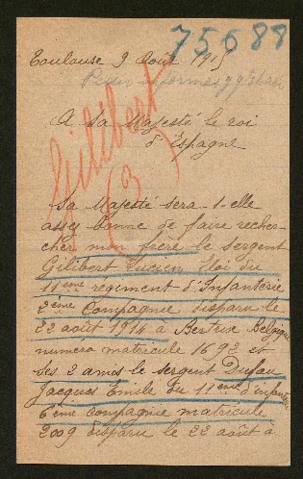 75688
Toulouse 9 Août 1915
Gilibert
(3)
A Sa Majesté le roi
d'Espagne
Sa Majesté sera-t-elle
assez bonne de faire recher-
cher mon frère le sergent
Gilibert Lucien Eloi du
11ème régiment d'Infanterie
2ème Compagnie disparu le
22 août 1914 à Bertrix Belgique
numéro matricule 1692 et
ses 2 amis le sergent Dufau
Jacques Emile du 11ème d'infanterie
6ème compagnie matricule
2009 disparu le 22 août à